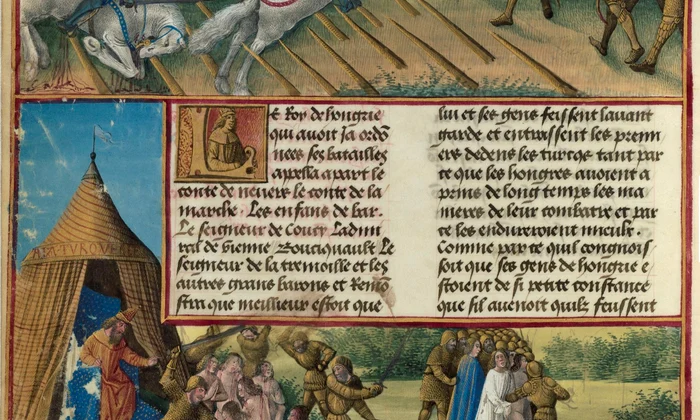 Le Roy de hongrie
qui auoit ja ordō
nees ses batailles
apella a part le
conte de neuers le conte de la
marche. Les enfans de bar.
Le seigneur de Coucy Ladmi
ral de vienne Bouciquault Le
seigneur de la tremoille et les
autres grans barons et Remō
stra que meillieur estoit que
lui et ses gens feissent lauant
garde et entrassent les premi
ers dedens les turcqs tant par
ce que les hongres auoient a
prins de long temps les ma
nieres de leur combatre et par
ce les endureroient mieulx.
Comme par ce quil congnois
soit que ses gens de hongrie e
stoient de si petite constance
que sil auenoit quilz feussent